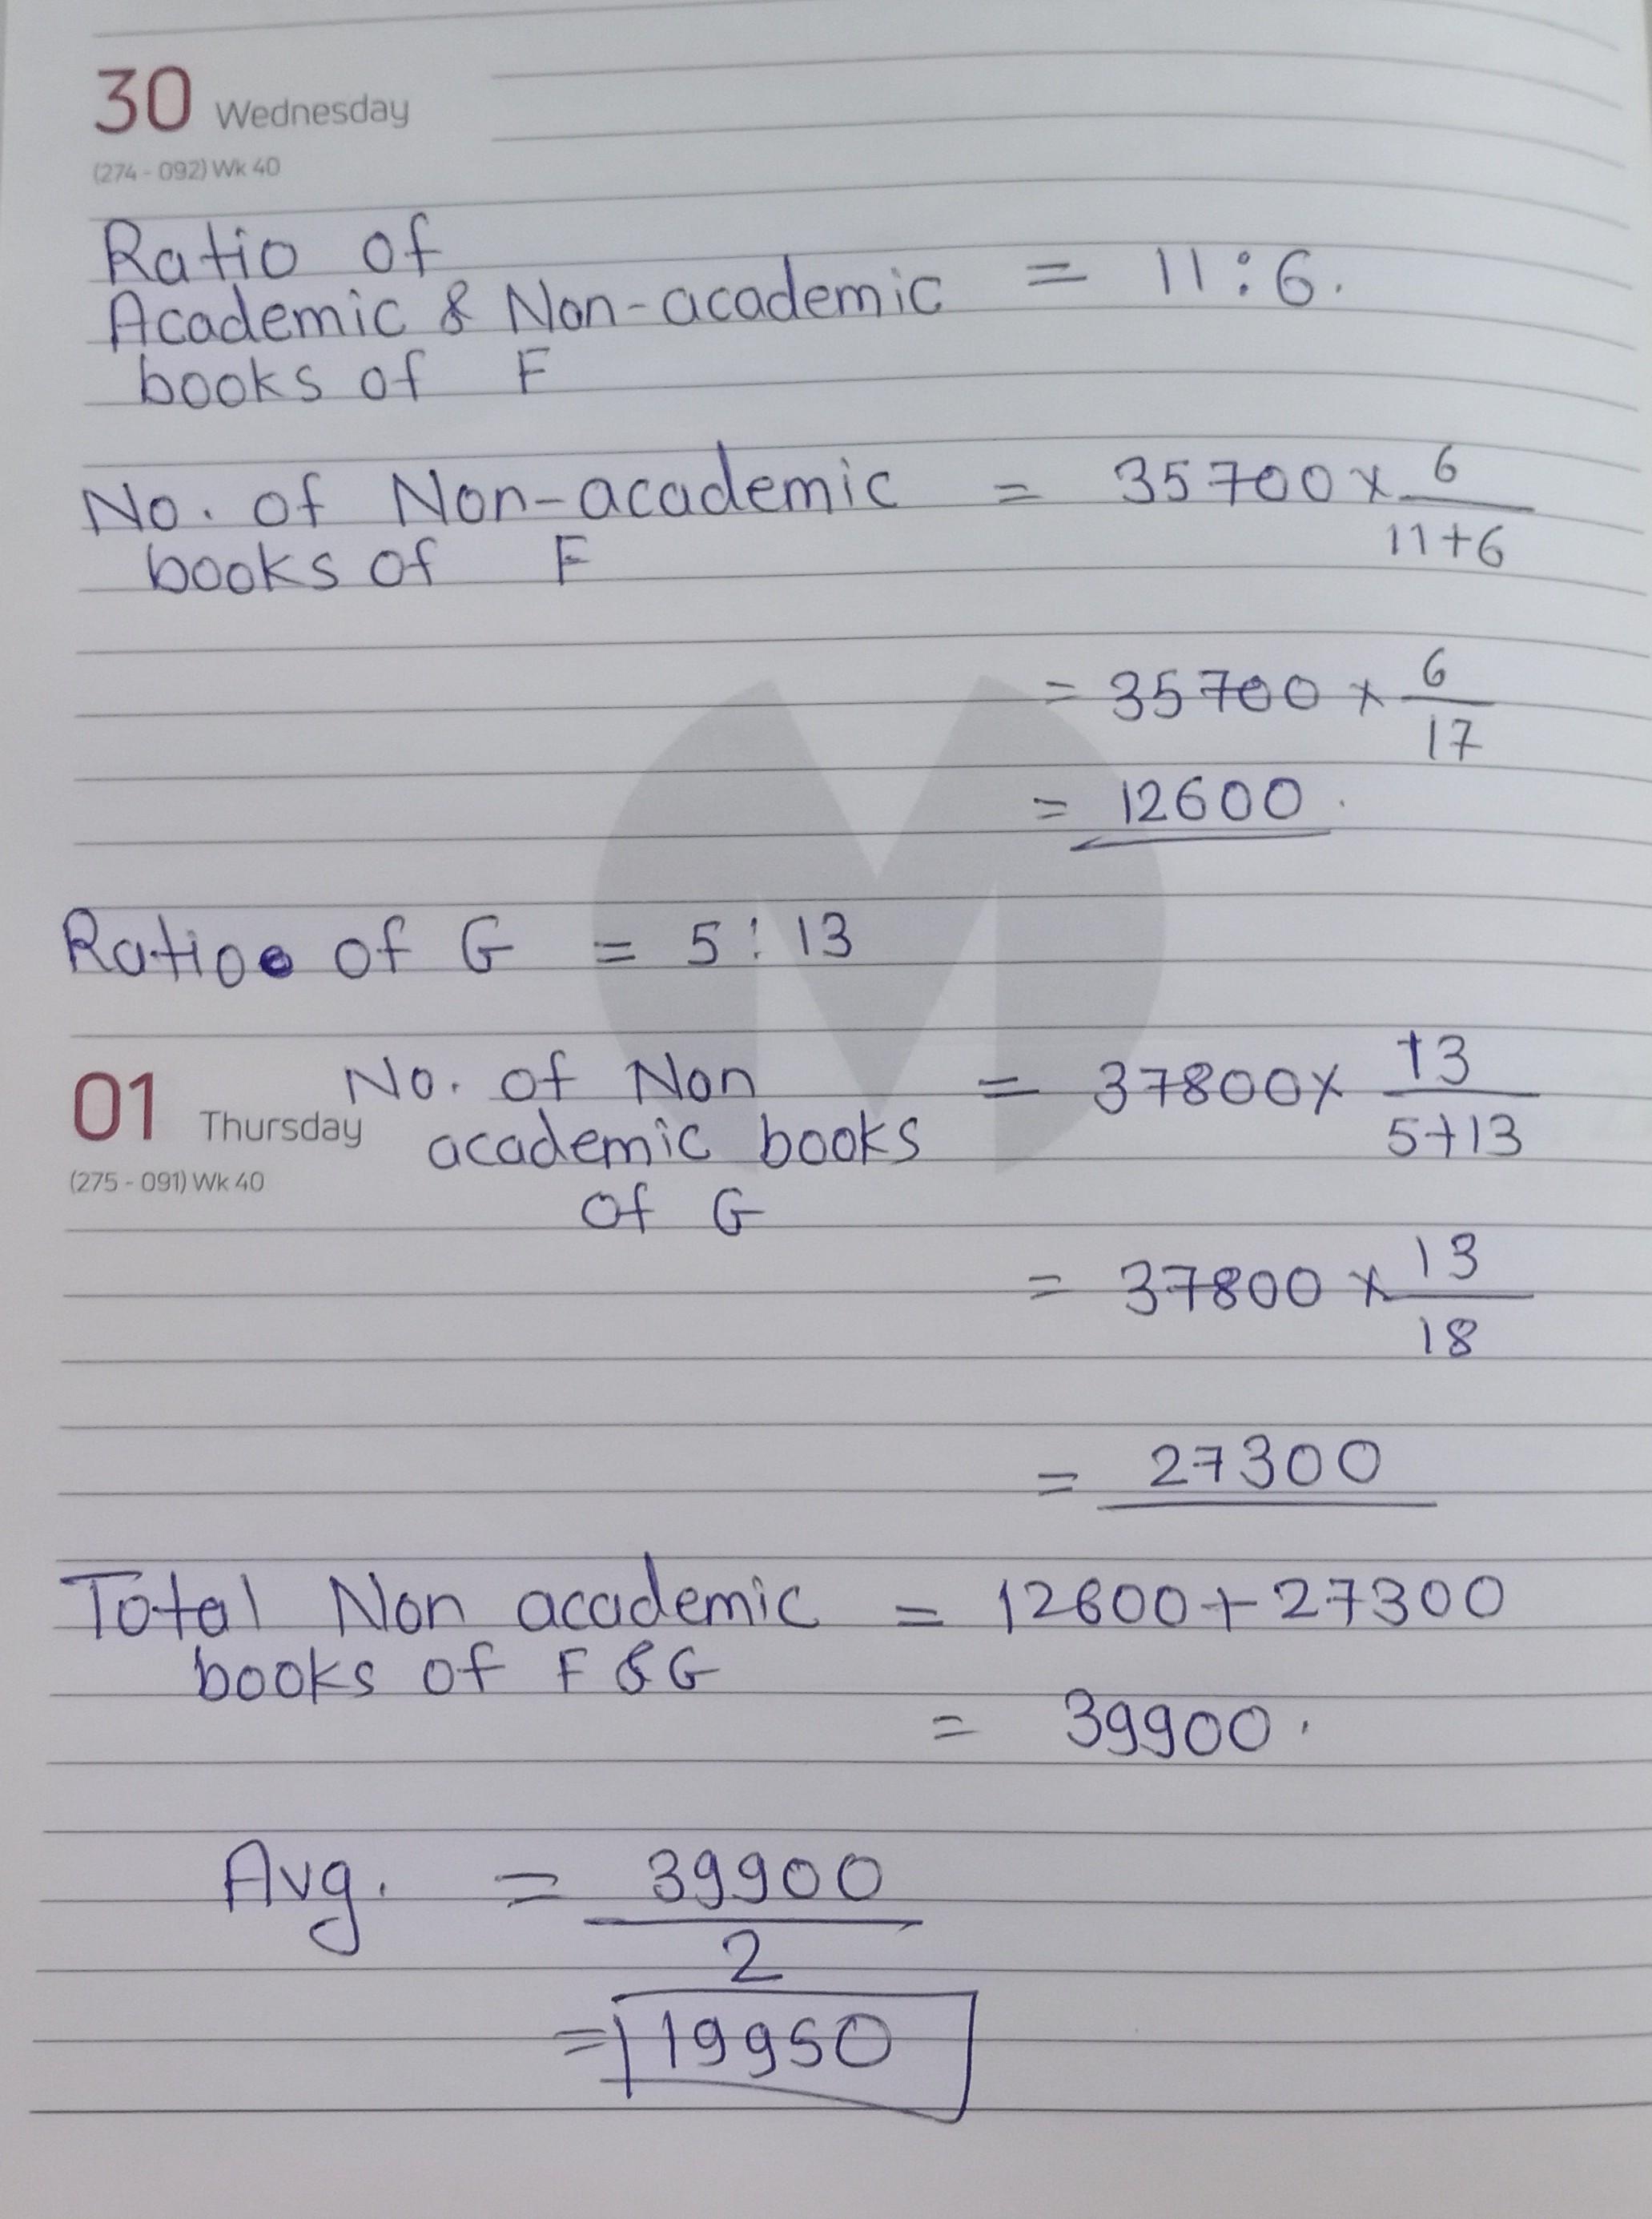 30 Wednesday
(274 - 092) Wk 40
Ratio of
Academic & Non-academic = 11:6.
books of F
No. of Non-academic = 35700 x 6
books of F 11+6
= 35700 x 6
17
= 12600.
Ratio of G = 5:13
01 Thursday
(275 - 091) Wk 40
No. of Non = 37800 x 13
academic books 5+13
of G
= 37800 x 13
18
= 27300
Total Non academic = 12600+27300
books of F & G
= 39900.
Avg. = 39900
2
= 19950